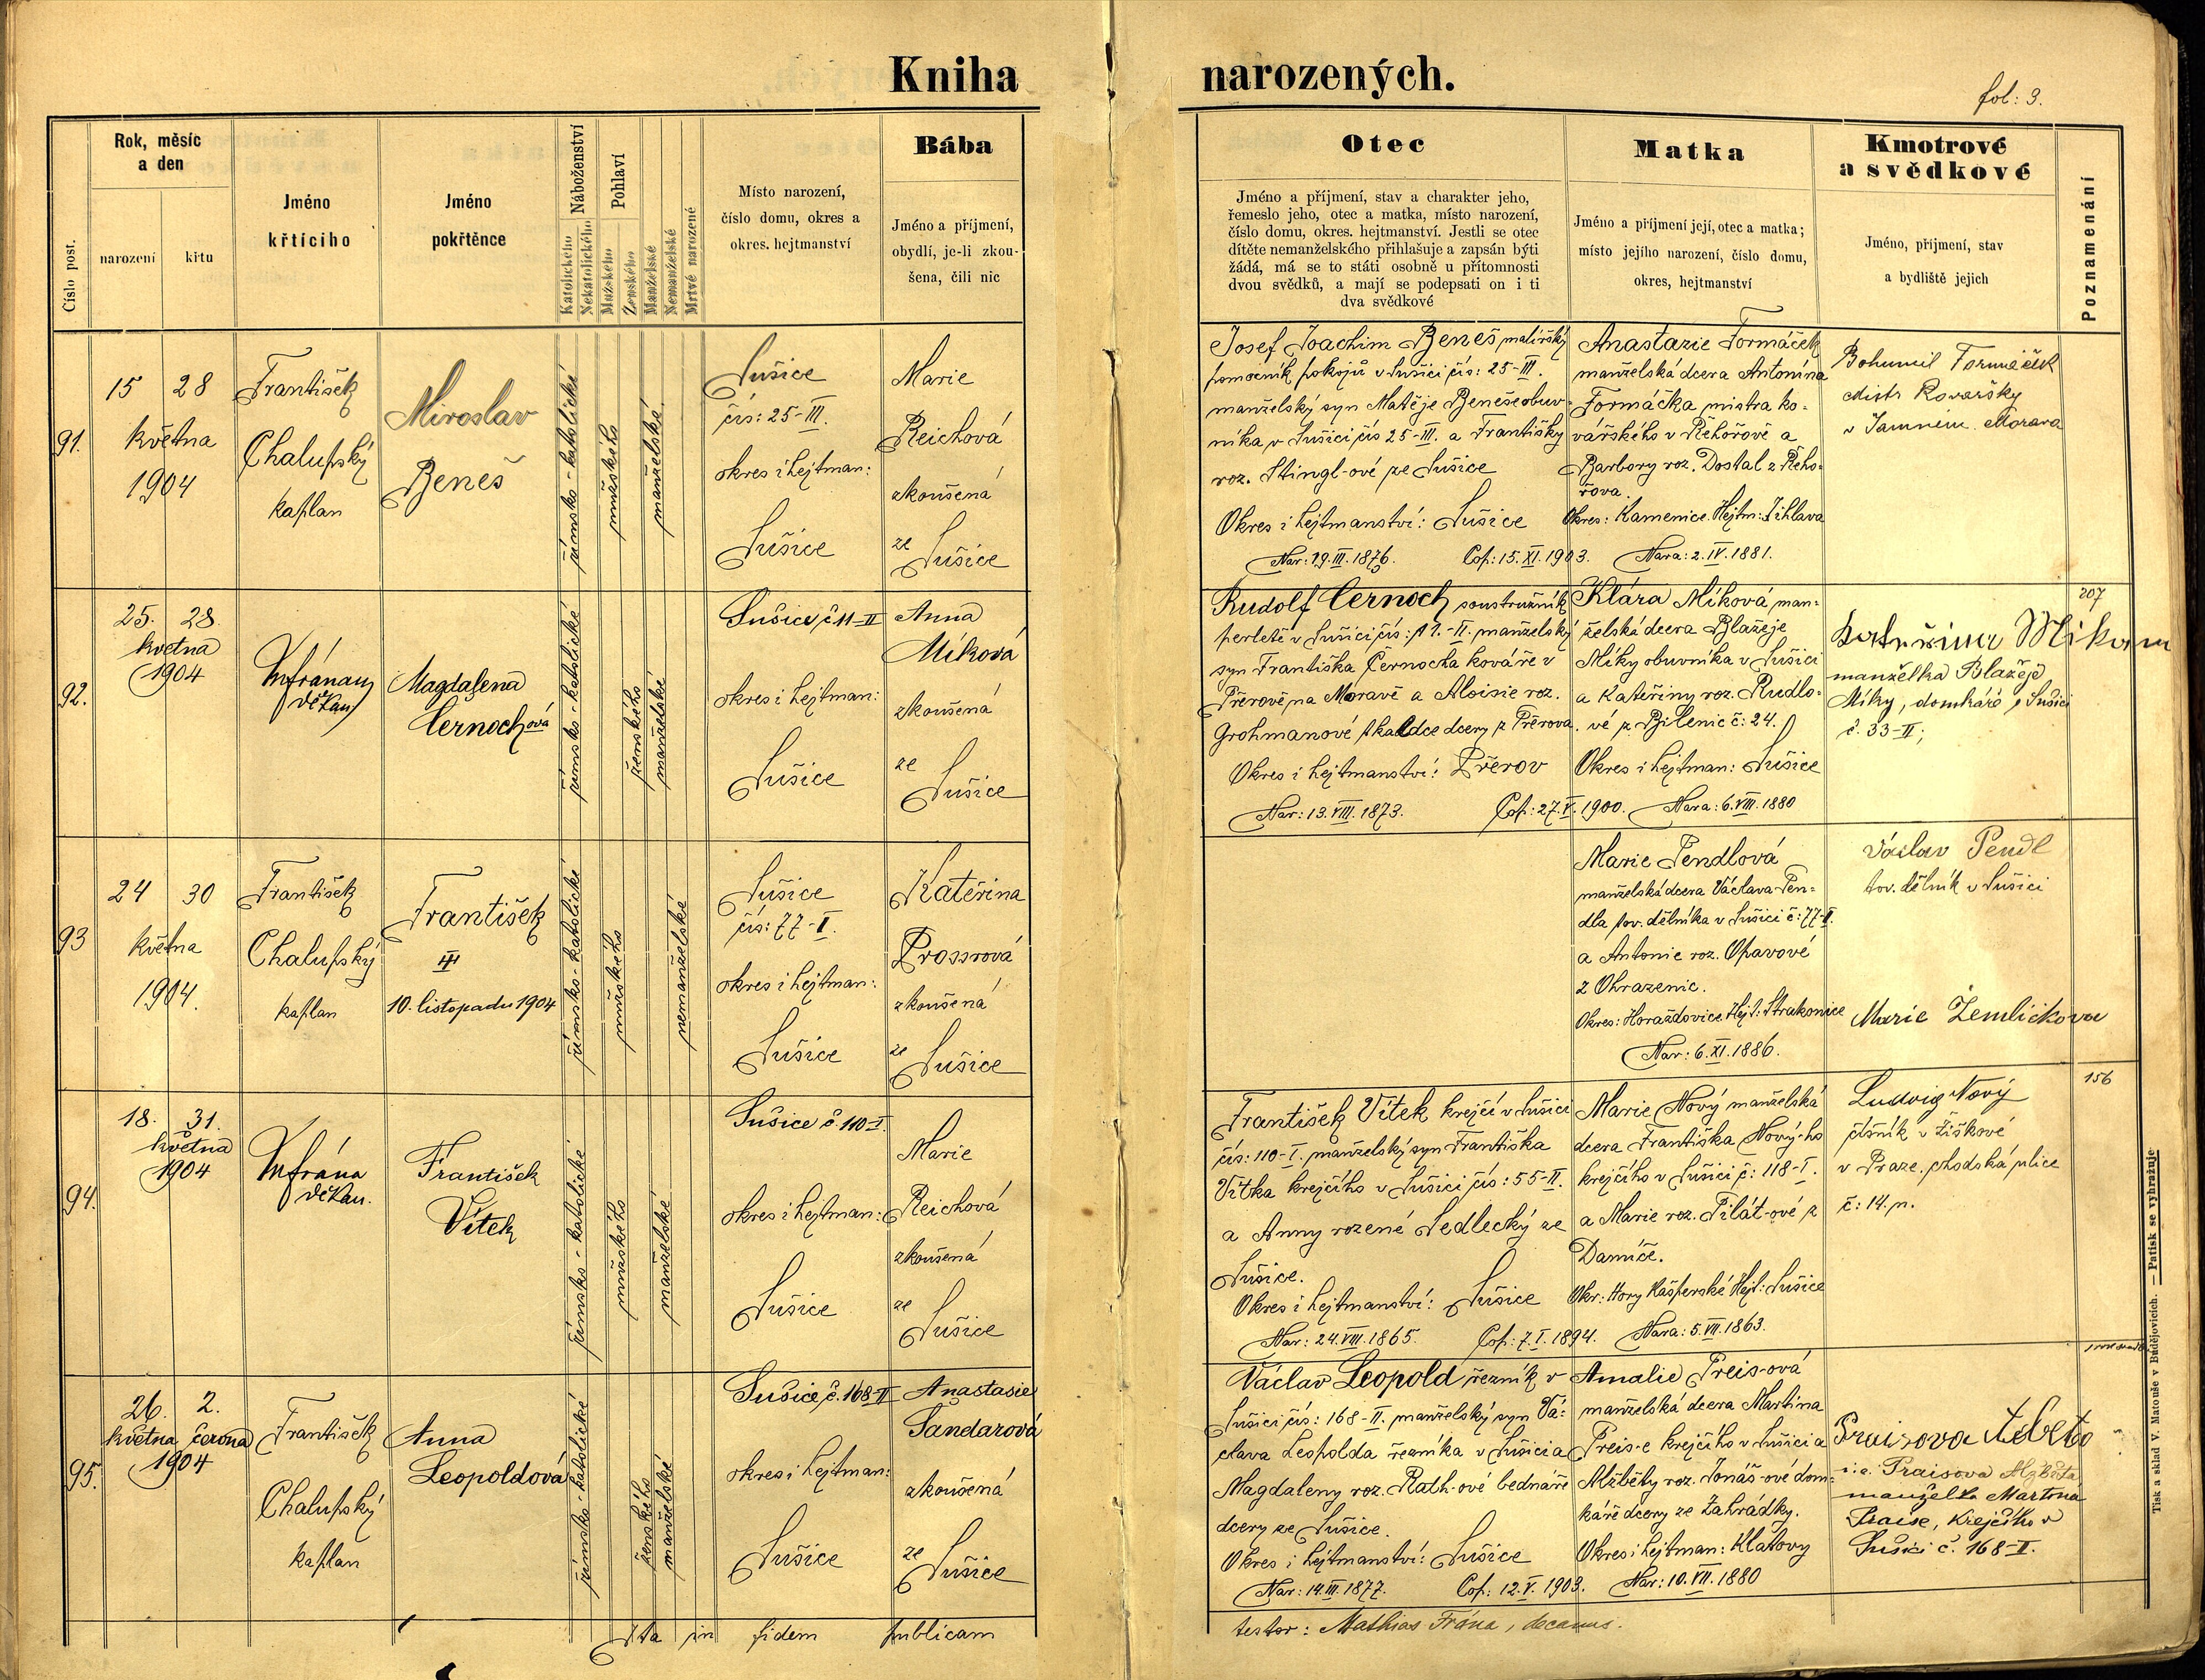 Kniha narozených.
fol: 3.
Číslo post.
Rok, měsíc
a den
narození
křtu
Jméno
křtícího
Jméno
pokřtěnce
Náboženství
Katolického
Nekatolického
Pohlaví
Mužského
Ženského
Manželské
Nemanželské
Mrtvé narozené
Místo narození,
číslo domu, okres a
okres. hejtmanství
Bába
Jméno a příjmení,
obydlí, je-li zkou-
šena, čili nic
Otec
Jméno a příjmení, stav a charakter jeho,
řemeslo jeho, otec a matka, místo narození,
číslo domu, okres. hejtmanství. Jestli se otec
dítěte nemanželského přihlašuje a zapsán býti
žádá, má se to státi osobně u přítomnosti
dvou svědků, a mají se podepsati on i ti
dva svědkové
Matka
Jméno a příjmení její, otec a matka;
místo jejího narození, číslo domu,
okres, hejtmanství
Kmotrové
a svědkové
Jméno, příjmení, stav
a bydliště jejich
Poznamenání
91.
15 28
května
1904
František
Chalupský
kaplan
Miroslav
Beneš
římsko-katolické
mužského
manželské
Sušice
čís: 25-III.
okres i hejtman:
Sušice
Marie
Reichová
zkoušená
ze
Sušice
Josef Joachim Beneš malířský
pomocník pokojů v Sušici čís: 25-III.
manželský syn Matěje Beneše obuv-
níka v Sušici čís 25-III. a Františky
roz. Stingl-ové ze Sušice
Okres i hejtmanství: Sušice
Nar: 19.III.1876. Cop: 15.XI.1903.
Anastazie Formáček
manželská dcera Antonína
Formáčka mistra ko-
vářského v Řehořově a
Barbory roz. Dostal z Řeho-
řova.
Okres: Kamenice. Hejtm: Jihlava
Nara: 2.IV.1881.
Bohumil Formáček
Mistr Kovařský
v Jamném Morava
92.
25. 28.
května
1904
děkan
Magdalena
Černochová
římsko-katolické
ženského
manželské
Sušice, č 11-II
okres i hejtman:
Sušice
Anna
Míková
zkoušená
ze
Sušice
Rudolf Černoch soustružník
perletě v Sušici čís: 11.-II. manželský
syn Františka Černocha kováře v
Přerově na Moravě a Aloisie roz.
Grohmanové tkadlce dcery z Přerova.
Okres i hejtmanství: Přerov
Nar: 13.VIII.1873. Cop: 27.V.1900.
Klára Míková man-
želská dcera Blažeje
Míky obuvníka v Sušici
a Kateřiny roz. Rudlo-
vé z Bilenic č: 24.
Okres i hejtman: Sušice
Nara: 6.VIII.1880
Kateřina Mikova
manželka Blažeje
Míky, domkáře v Sušici
č. 33-II;
207
93
24 30
května
1904.
František
Chalupský
kaplan
František
III
10. listopadu 1904
římsko-katolické
mužského
nemanželské
Sušice
čís: 77-I.
okres i hejtman:
Sušice
Kateřina
Prossrová
zkoušená
ze
Sušice
Marie Pendlová
manželská dcera Václava Pen-
dla tov. dělníka v Sušici č: 77-I.
a Antonie roz. Opavové
z Ohrazenic.
Okres: Horaždovice. Hejt: Strakonice
Nar: 6.XI.1886.
Václav Pendl
tov. dělník v Sušici
Marie Žemličkova
94.
18. 31.
května
1904
děkan.
František
Vítek
římsko-katolické
mužského
manželské
Sušice č. 110-I.
okres i hejtman:
Sušice
Marie
Reichová
zkoušená
ze
Sušice
František Vítek krejčí v Sušici
čís: 110-I. manželský syn Františka
Vítka krejčího v Sušici čís: 55-II.
a Anny rozené Sedlecký ze
Sušice.
Okres i hejtmanství: Sušice
Nar: 24.VIII.1865. Cop: 7.I.1894.
Marie Nový manželská
dcera Františka Nový-ho
krejčího v Sušici č: 118-I.
a Marie roz. Pilát-ové z
Damíče.
Okr: Hory Kašperské Hejt: Sušice
Nara: 5.VII.1863.
Ludvig Nový
číšník v Žiškově
v Praze. Chodská ulice
č: 14. n.
156
95.
26. 2.
května června
1904
František
Chalupský
kaplan
Anna
Leopoldová
římsko-katolické
ženského
manželské
Sušice č. 168-II
okres i hejtman:
Sušice
Anastasie
Šandarová
zkoušená
ze
Sušice
Václav Leopold řezník v
Sušici čís: 168-II. manželský syn Vá-
clava Leopolda řezníka v Sušici a
Magdaleny roz. Rath-ové bednáře
dcery ze Sušice.
Okres i hejtmanství: Sušice
Nar: 14.III.1877. Cop: 12.V.1903.
Amalie Preis-ová
manželská dcera Martina
Preis-e krejčího v Sušici a
Alžběty roz. Jonáš-ové dom-
káře dcery ze Zahrádky.
Okres i hejtman: Klatovy
Nar: 10.VII.1880
Praisova
i. e. Praisova Alžběta
manželka Martina
Praise, krejčího v
Sušici č. 168-II.
Ita in fidem publicam
testor: Mathias Frána, decanus.
Tisk a sklad V. Matouše v Budějovicích. — Patisk se vyhražuje